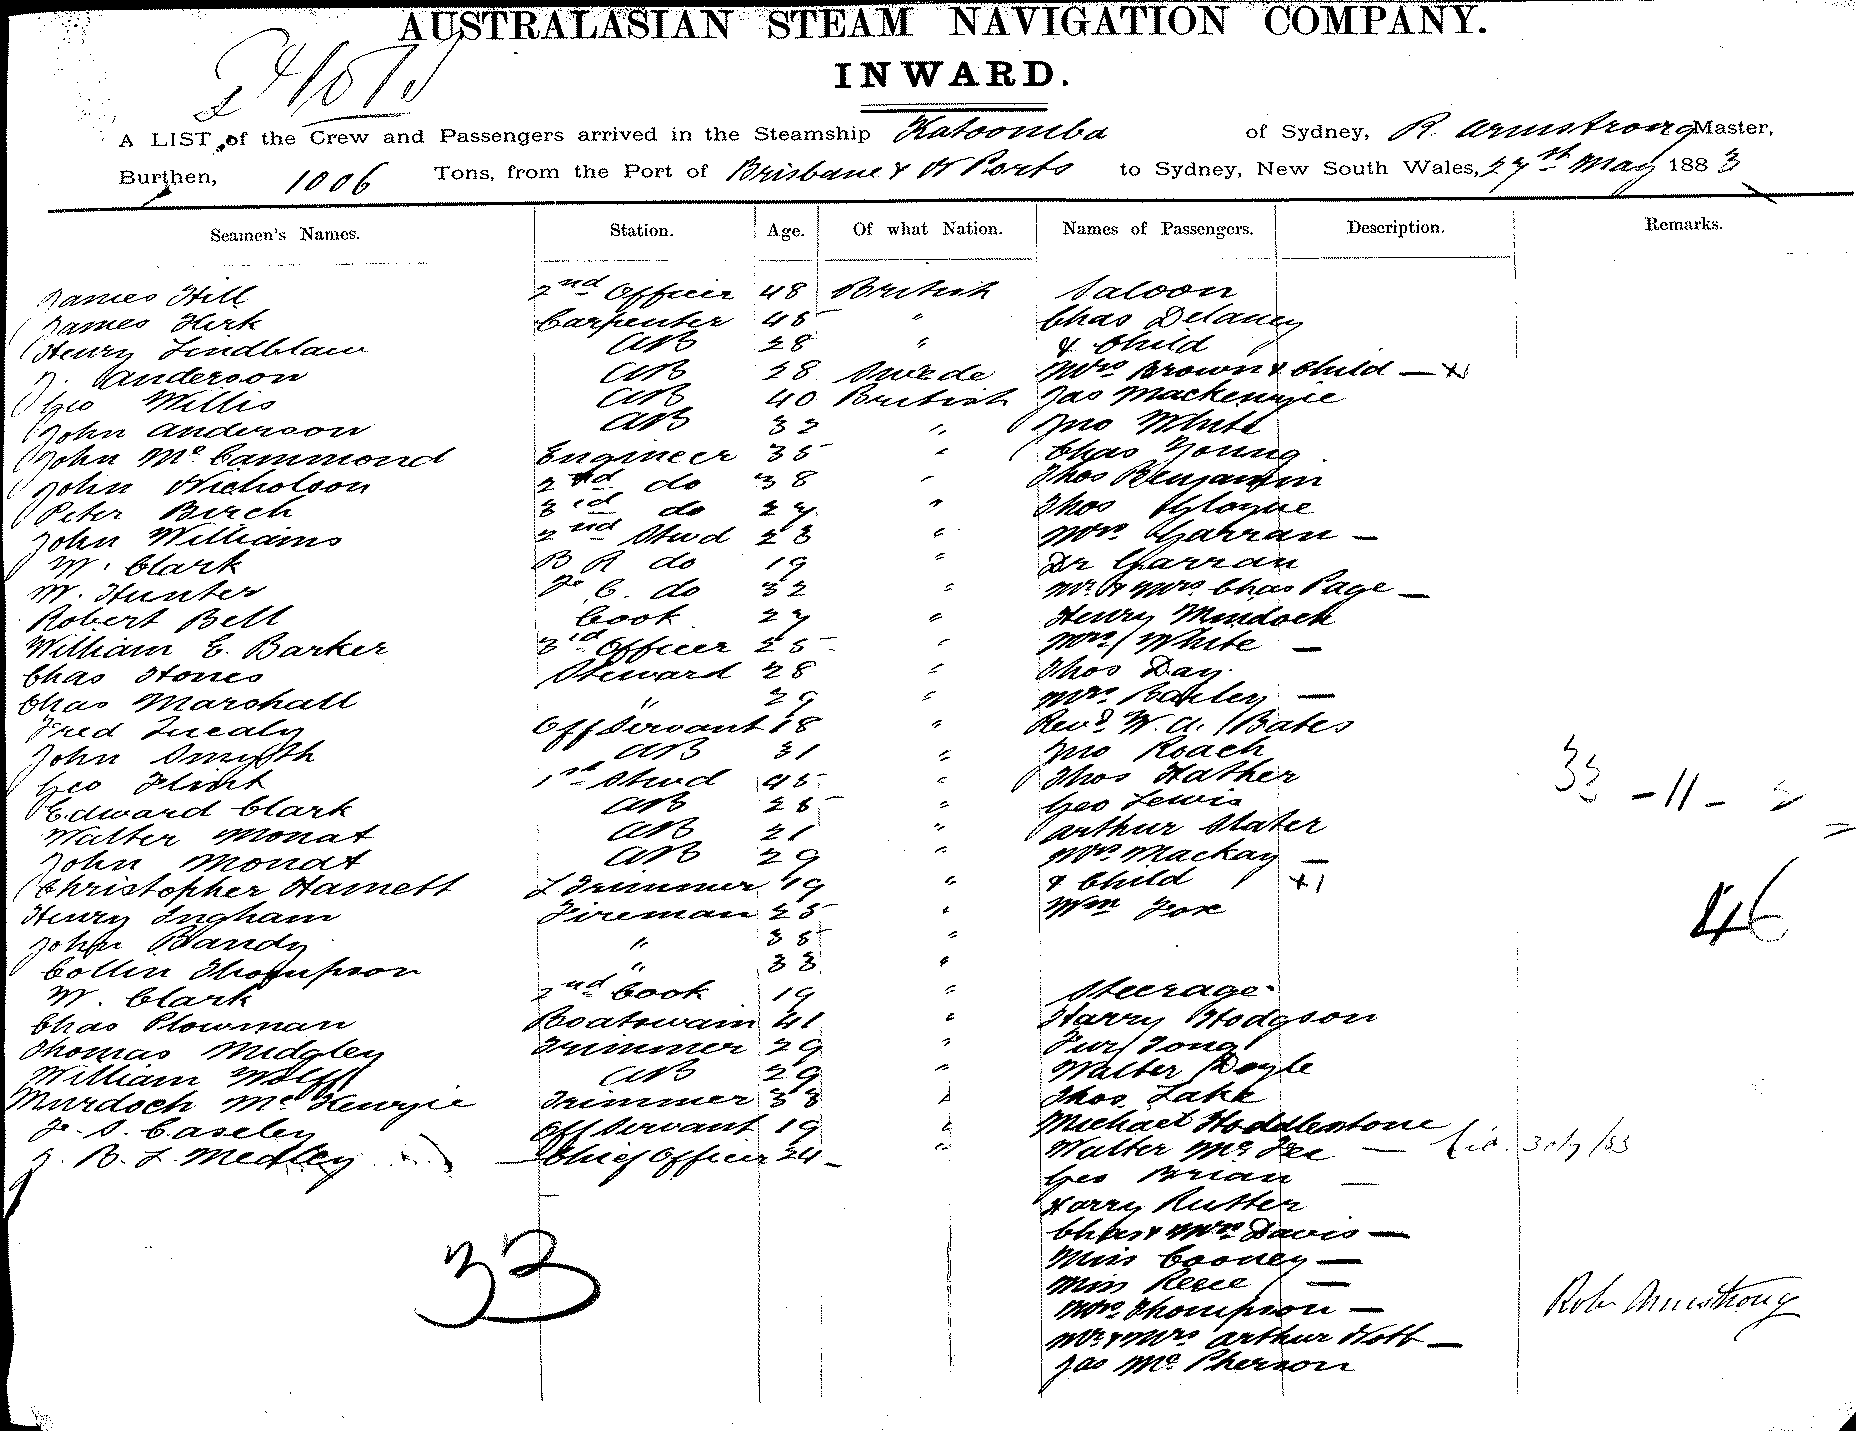 AUSTRALASIAN STEAM NAVIGATION COMPANY.
INWARD.
A LIST of the Crew and Passengers arrived in the Steamship Katoomba of Sydney, R. Armstrong Master,
Burthen, 1006 Tons, from the Port of Brisbane & Ports to Sydney, New South Wales, 27th May 1883
Seamen's Names. Station. Age. Of what Nation. Names of Passengers. Description. Remarks.
James Hill 2nd Officer 48 British Saloon
James Kirk Carpenter 45 " Chas Delaney
Henry Lindblaw AB 28 " & Child
J. Anderson AB 28 Swede Mrs Brown & Child —
Geo Willis AB 40 British Jas Mackenzie
John Anderson AB 32 " Jno White
John McCammond Engineer 35 " Chas Young
John Nicholson 2nd do 38 " Thos Benjamin
Peter Birch 3rd do 27 " Thos Glogue
John Williams 2nd Stwd 23 " Mrs Garran —
W. Clark B R do 19 " Dr Garran
W. Hunter F. C. do 32 " Mr & Mrs Chas Page —
Robert Bell Cook 27 " Henry Murdoch
William E. Barker 3rd Officer 25 " Mrs White —
Chas Hones Steward 28 " Thos Day
Chas Marshall " 29 " Mrs Baxley —
Fred Tucaly Off Servant 18 " Revd W. A. Bates
John Smyth AB 31 " Jno Roach
Geo Flint 1st Stwd 45 " Thos Hather
Edward Clark AB 25 " Geo Lewis
Walter Monat AB 21 " Arthur Slater
John Monat AB 29 " Mrs Mackay —
Christopher Hamett L Trimmer 19 " & Child
Henry Ingham Fireman 25 " Wm Fox
John Bandy " 35 "
Collin Thompson " 33 "
W. Clark 2nd Cook 19 " Steerage
Chas Plowman Boatswain 41 " Harry Hodgson
Thomas Midgley Trimmer 29 " Tong
William Wolff AB 29 " Walter Doyle
Murdoch McKenzie Trimmer 33 " Thos Lake
F. S. Caseley Off Servant 19 " Michael Hoddlestone
J. B. L. Medley Chief Officer 24 " Walter McFee —
Geo Brian —
Harry Rutter
Chas & Mrs Davis —
Miss Cooney —
Miss Reece —
Mrs Thompson —
Mr & Mrs Arthur Nott —
Jas McPherson
33 - 11 -
46
33
Robt Armstrong